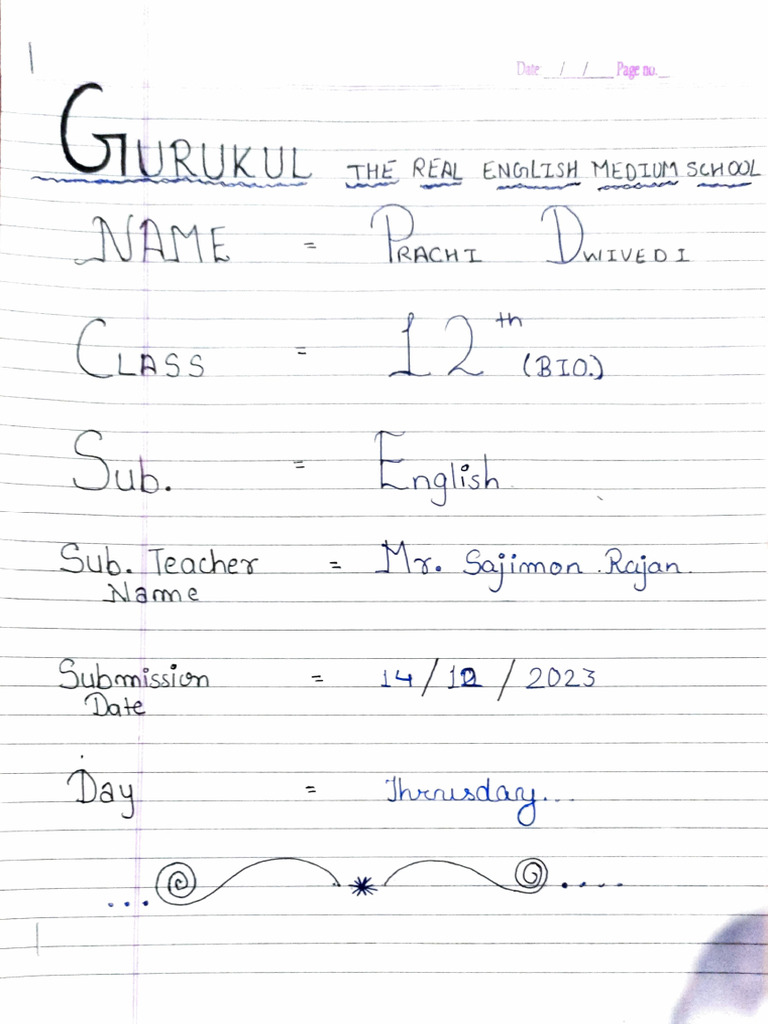 Date / / Page no.
GURUKUL THE REAL ENGLISH MEDIUM SCHOOL
NAME = PRACHI DWIVEDI
CLASS = 12th (BIO.)
Sub. = English
Sub. Teacher = Mr. Sajimon Rajan.
Name
Submission = 14/12/2023
Date
Day = Thrusday...